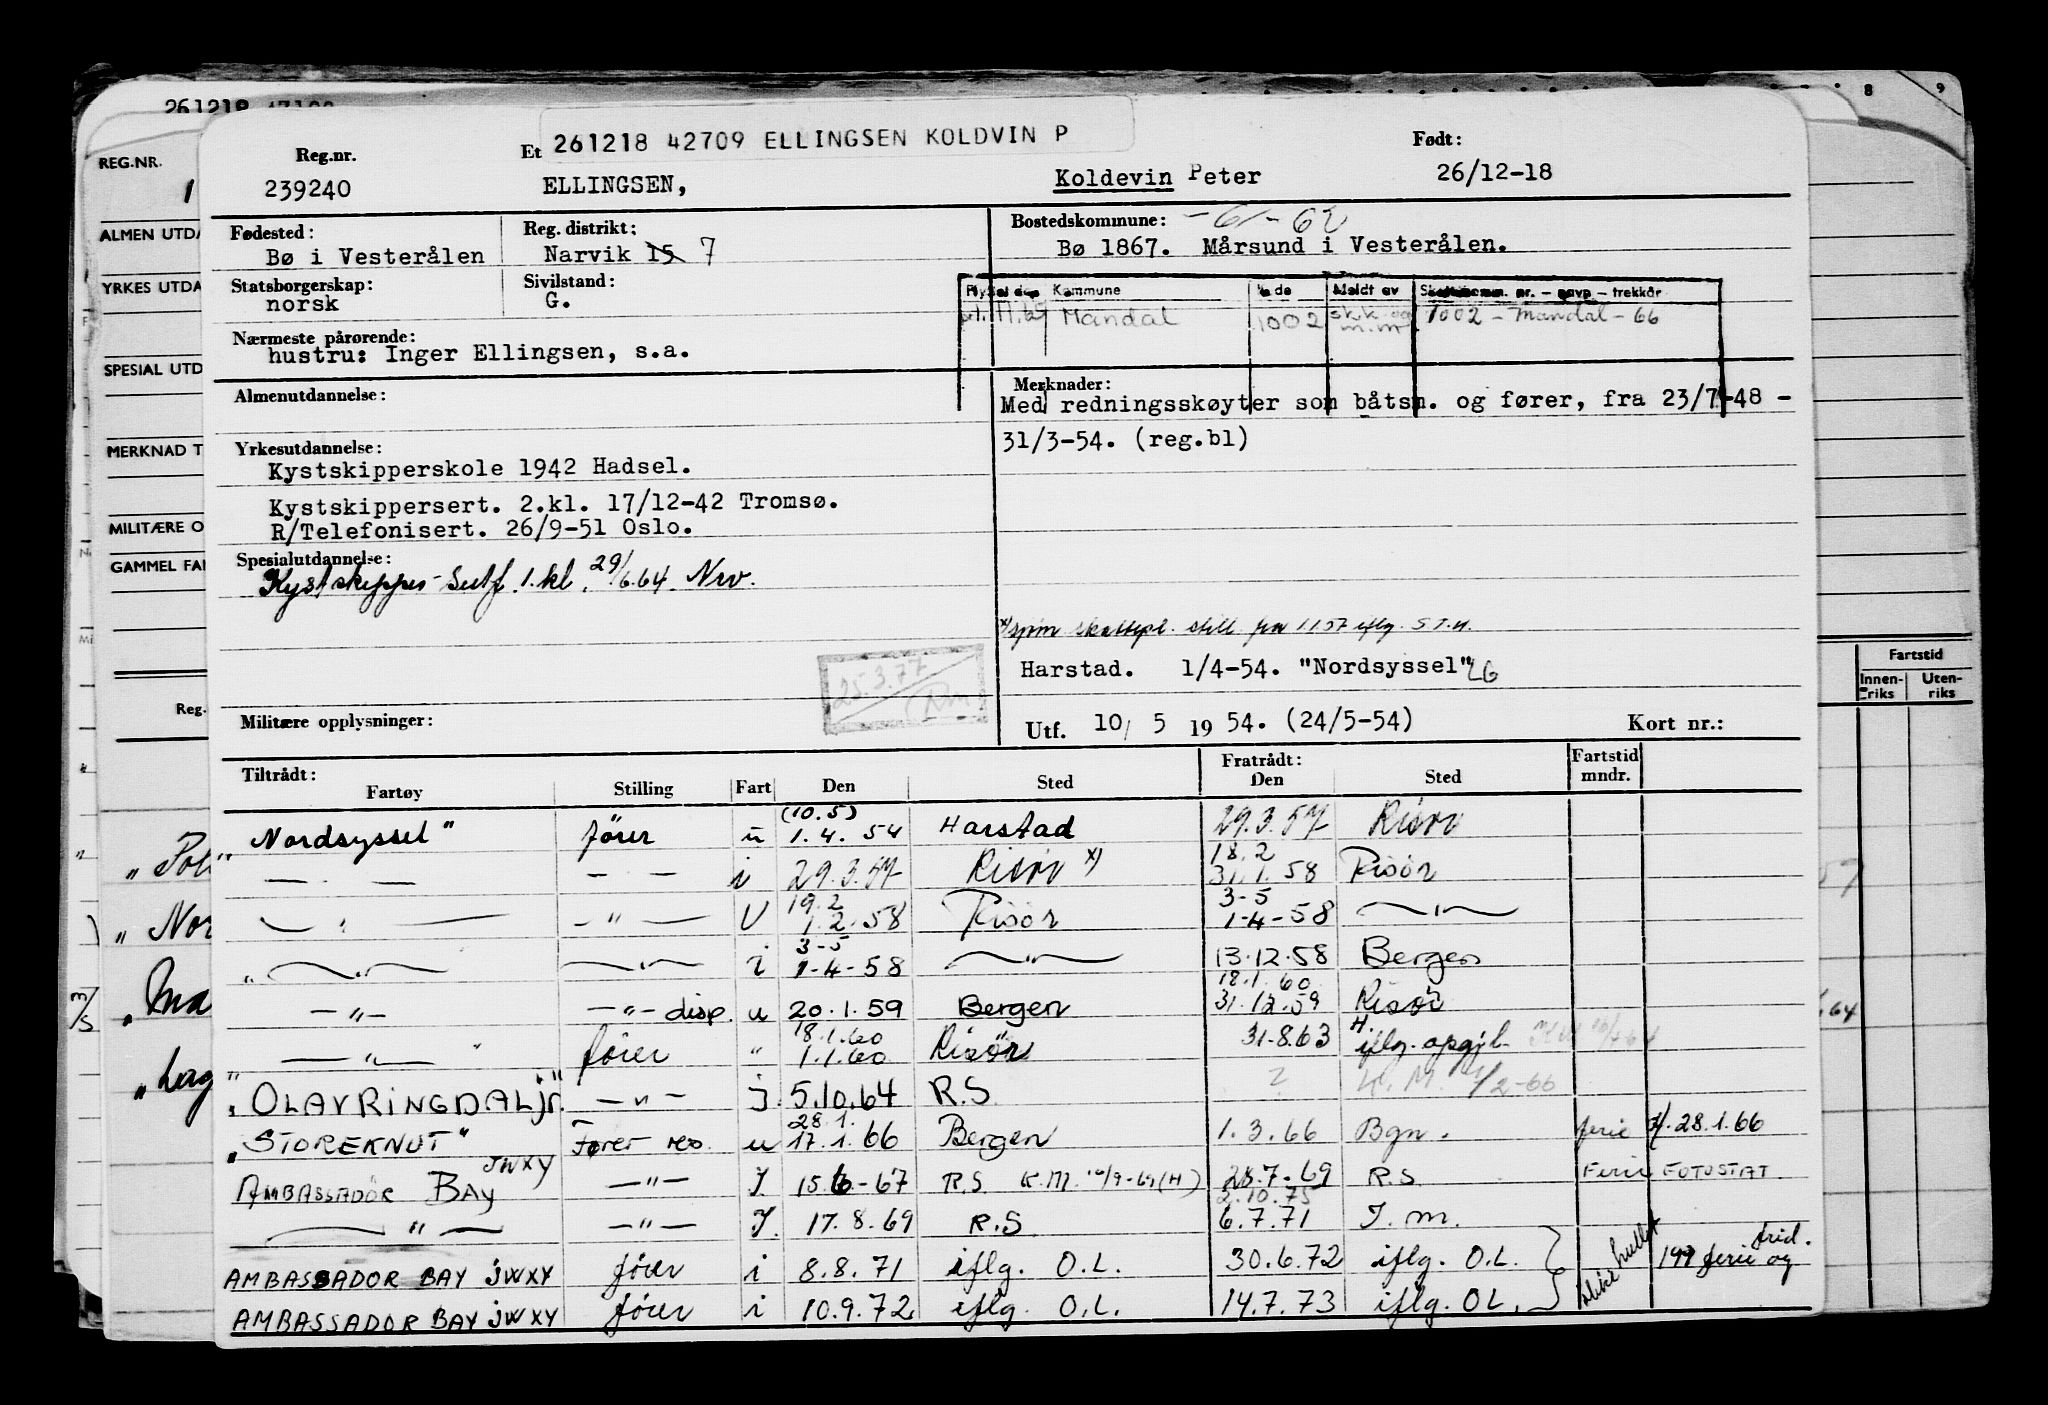 261218
8 9
REG.NR.
1
ALMEN UTDA
YRKES UTDA
SPECIAL UTD
MERKNAD T
MILITÆRE O
GAMMEL FA
Reg.
"Pol
"Nor
"Ma
"Lag
3/5
Fartstid
Innen-riks Uten-riks
261218 42709 ELLINGSEN KOLDVIN P
Reg.nr. Et Født:
239240 ELLINGSEN, Koldevin Peter 26/12-18
Fødested: Reg. distrikt: Bostedskommune: -61-62
Bø i Vesterålen Narvik 15 7 Bø 1867. Mårsund i Vesterålen.
Statsborgerskap: Sivilstand:
norsk G.
Kommune Meldt av - trekkår
Mandal 1002 sk.k. og m.m 1002 - Mandal - 66
Nærmeste pårørende:
hustru: Inger Ellingsen, s.a.
Almenutdannelse: Merknader:
Med redningsskøyter som båtsm. og fører, fra 23/7-48 -
31/3-54. (reg.bl)
Yrkesutdannelse:
Kystskipperskole 1942 Hadsel.
Kystskippersert. 2.kl. 17/12-42 Tromsø.
R/Telefonisert. 26/9-51 Oslo.
Spesialutdannelse:
Kystskipper-Sertf. 1.kl. 29/6.64 Nrv.
x) sjøm skattepl. still fra 1157 iflg. S.T.H.
Harstad. 1/4-54. "Nordsyssel" LG
25.3.77
Militære opplysninger: Utf. 10/ 5 1954. (24/5-54) Kort nr.:
Tiltrådt: Fratrådt: Fartstid
Fartøy Stilling Fart Den Sted Den Sted mndr.
(10.5)
Nordsyssel" fører u 1.4.54 Harstad 29.3.57 Risør
18.2
— — — — i 29.3.57 Risør x) 31.1.58 Risør
19.2 3-5
— " — — " — U 1.2.58 Risør 1-4-58 — " —
3-5
" — " — — " — i 1-4-58 — " — 13.12.58 Bergen
18.1.60
— " — — " — disp. u 20.1.59 Bergen 31.12.59 Risør
18.1.60
— " — " fører " 1.1.60 Risør 31.8.63 iflg. oppgj. H
"OLAV RINGDAL jr." — " — J. 5.10.64 R.S. ? H.M. /2-66
28.1.
"STOREKNUT" Fører res. u 17.1.66 Bergen 1.3.66 Bgn. ferie 28.1.66
AMBASSADØR BAY JWXY — " — J. 15.6-67 R.S. K.M. /9-69 (H) 23.7.69 R.S. Ferie FOTOSTAT
2.10.75
— " — — " — J. 17.8.69 R.S 6.7.71 J.m.
AMBASSADOR BAY JWXY fører i 8.8.71 iflg. O.L. 30.6.72 iflg. O.L. ikke hullet 199 ferie og frid.
AMBASSADOR BAY JWXY fører i 10.9.72 iflg. O.L. 14.7.73 iflg. OL.